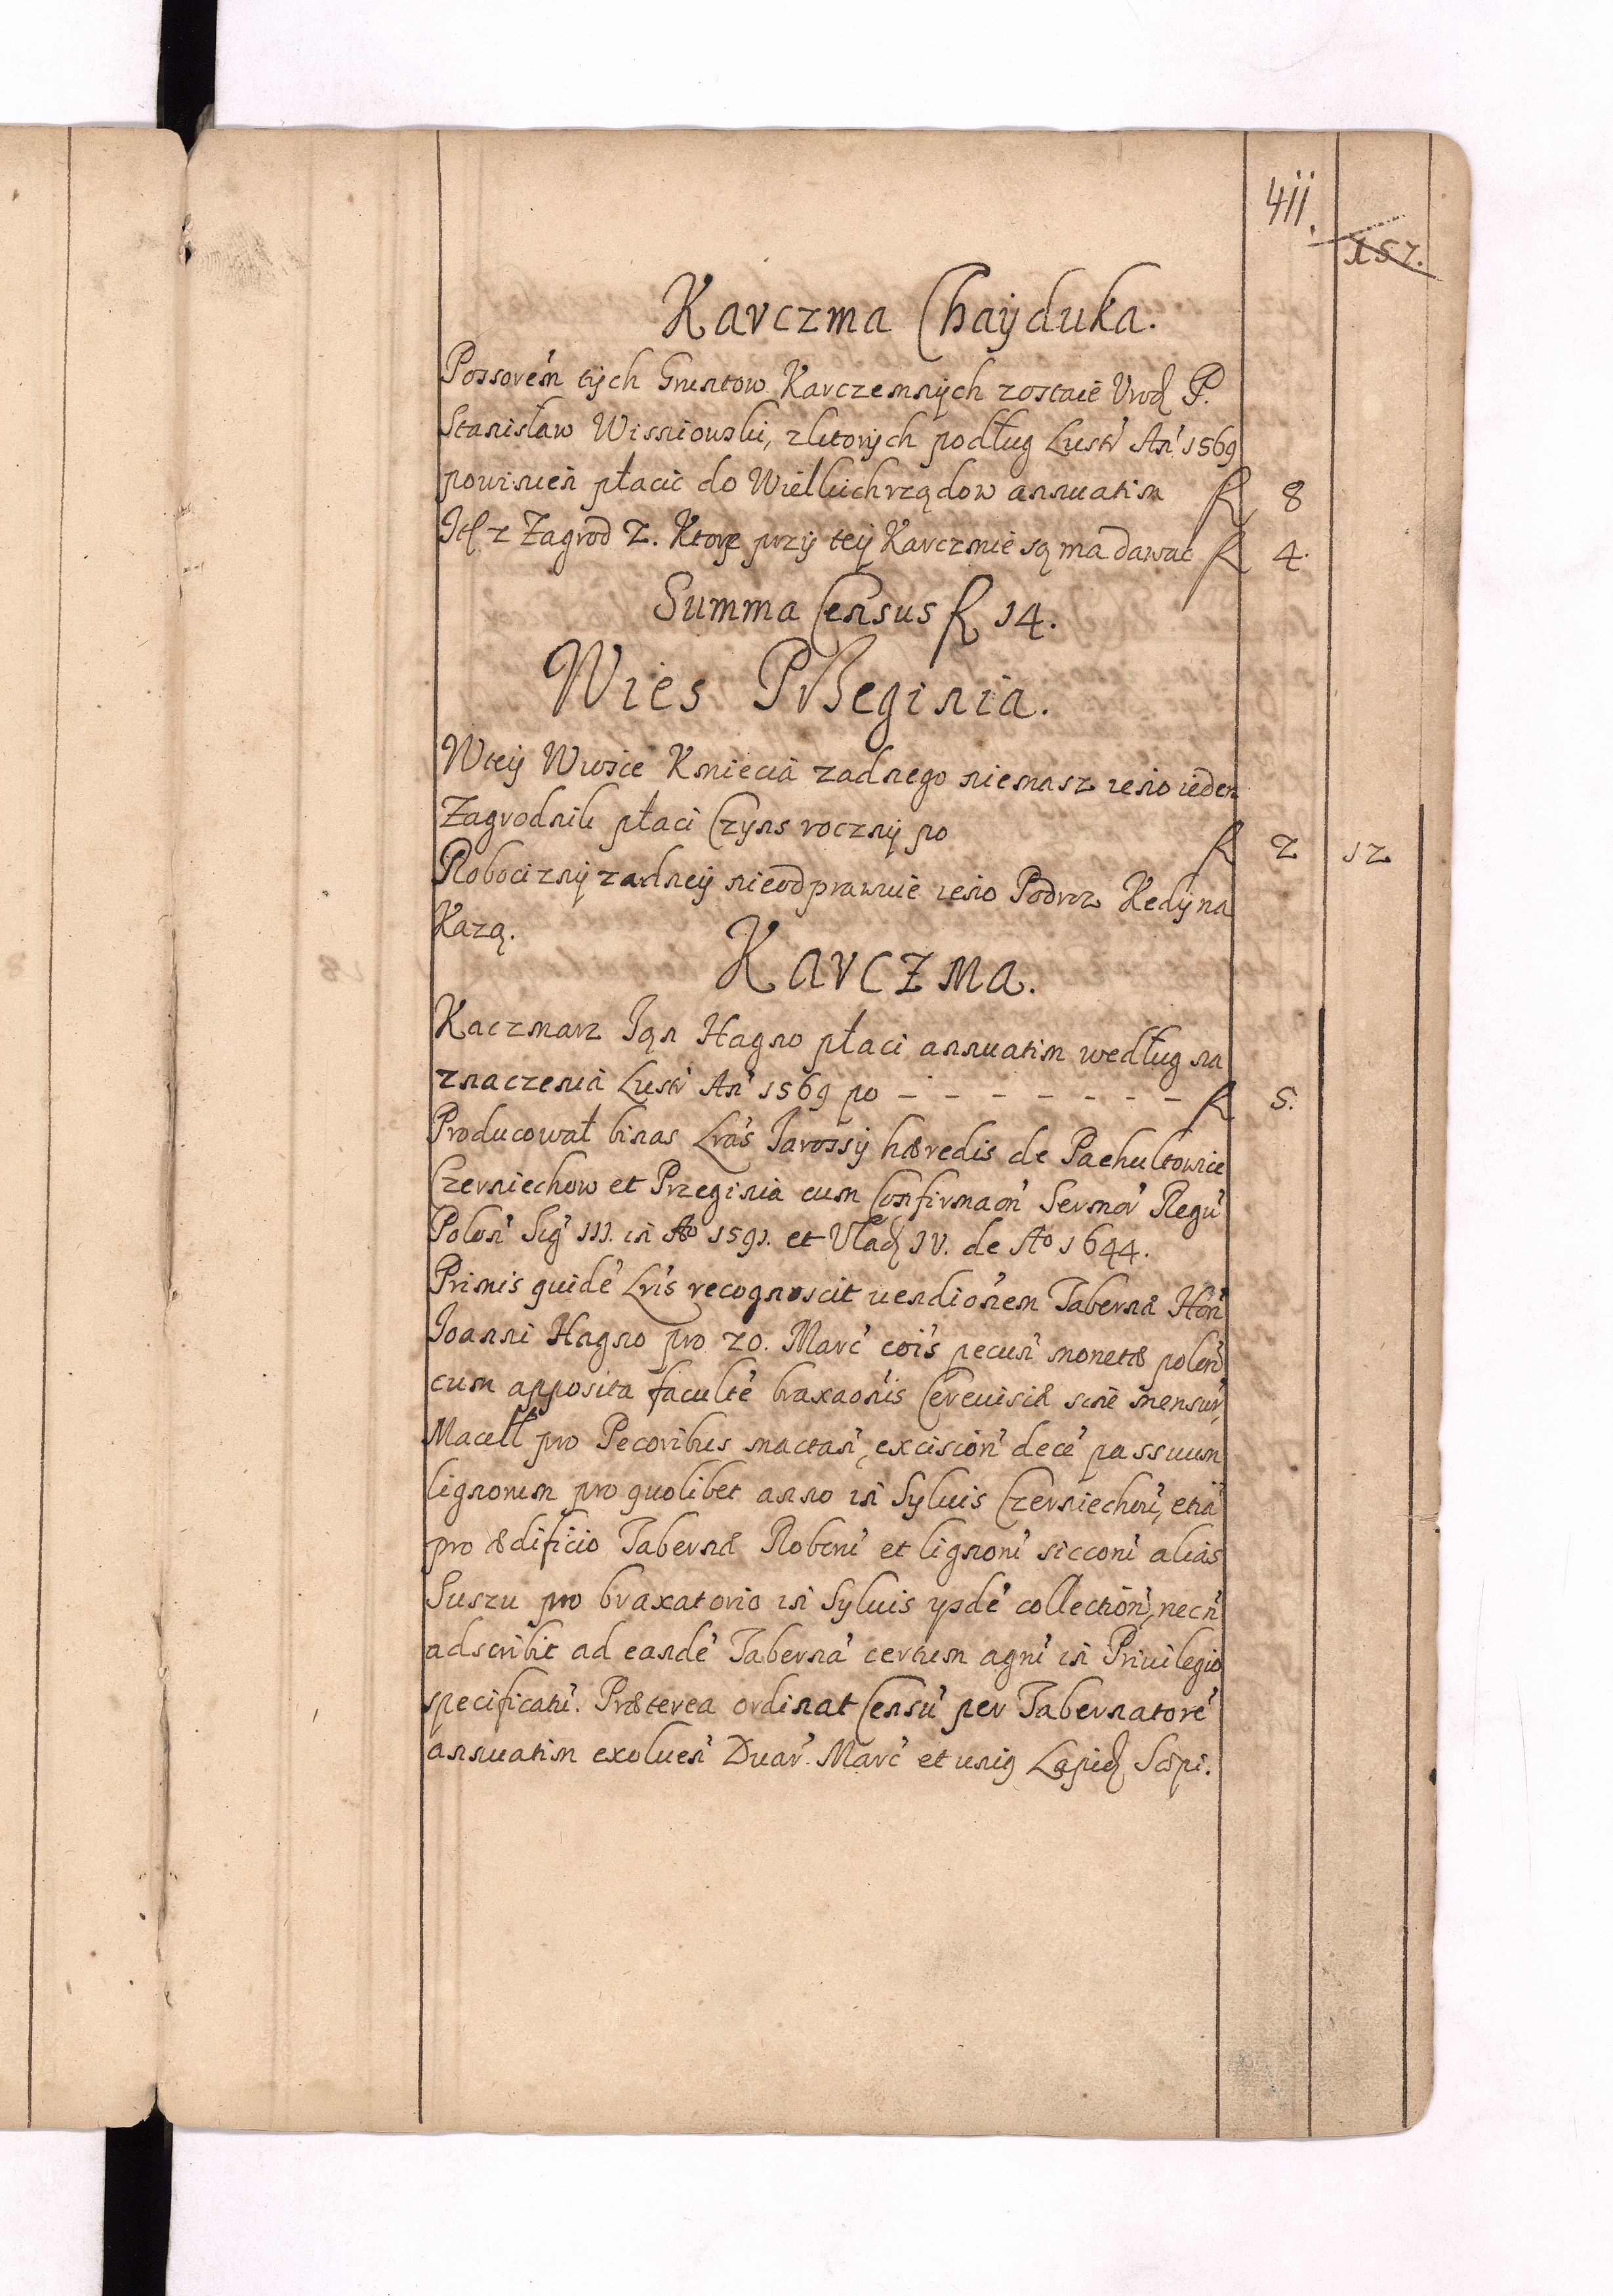 411.
157.
Karczma Chaÿduka.
Possorem tych Gruntow Karczemnÿch zostaie Urod P.
Stanisław Wisniowski, z ktorÿch podług Lustr An 1569
powinien płacić do Wielkichrządow annuatim f 8
It z Zagrod 2. Ktore przÿ teÿ Karczmie są ma dawac f 4.
Summa Census f 14.
Wies Przeginia.
W teÿ Wiosce Kmiecia zadnego niemasz ieno ieden
Zagrodnik płaci Czyns rocznÿ po f 2 12
Robociznÿ zadneÿ nieodprawuie ieno Podroz Kedÿ na
Kazą.
Karczma.
Kaczmarz Jan Hagno płaci annuatim według na
znaczenia Lustr An 1569 po - - - - - - - f 5.
Producował binas Lras Jarossÿ hæredis de Pachultowice
Czerniechow et Przeginia cum Confirmaon Sermor Regu
Polon Sig III. in Ao 1591. et Vlad IV. de Ao 1644.
Primis quide Lris recognoscit uendionem Tabernæ Hon
Joanni Hagno pro 20. Marc cois pecun monetæ polon
cum apposita faculte braxaonis Cereuisiæ sine mensur,
Macell pro Pecoribus mactan, excision dece passuum
lignorum pro quolibet anno in Syluis Czerniechou, etia
pro ædificio Tabernæ Roboru et lignoru siccoru alias
Suszu pro braxatorio in Syluis ÿsde collection, necn
adscribit ad eande Taberna certum agru in Priuilegio
specificatu. Præterea ordinat Censu per Tabernatore
annuatim exoluen Duar Marc et unig Lapid Sæpi.